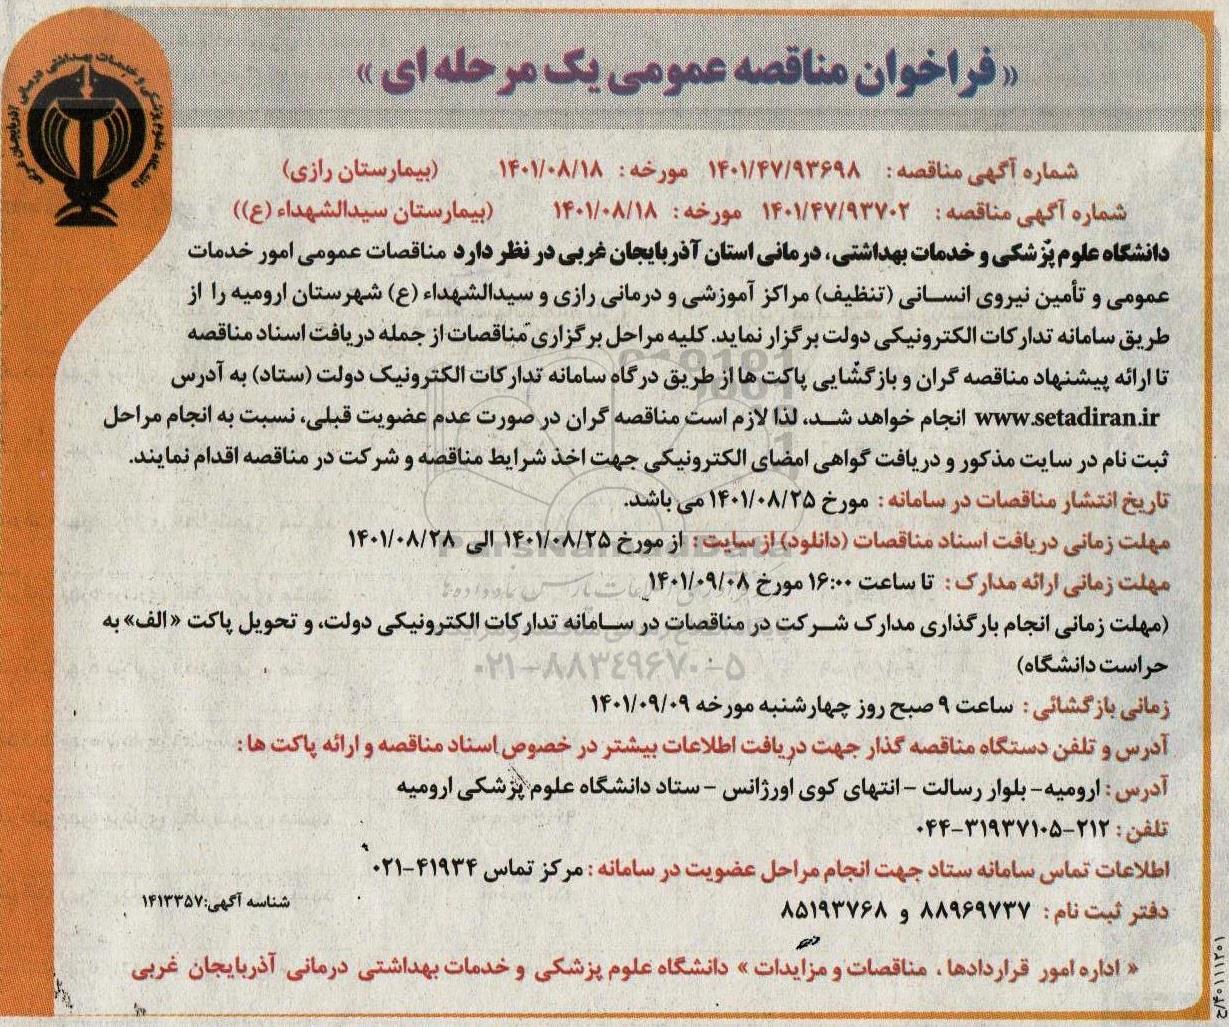 « فراخوان مناقصه عمومی یک مرحله ای »
شماره آگهی مناقصه : ۱۴۰۱/۴۷/۹۳۶۹۸ مورخه : ۱۴۰۱/۰۸/۱۸ (بیمارستان رازی)
شماره آگهی مناقصه : ۱۴۰۱/۴۷/۹۳۷۰۲ مورخه : ۱۴۰۱/۰۸/۱۸ (بیمارستان سیدالشهداء (ع))
دانشگاه علوم پزشکی و خدمات بهداشتی، درمانی استان آذربایجان غربی در نظر دارد مناقصات عمومی امور خدمات
عمومی و تأمین نیروی انسانی (تنظیف) مراکز آموزشی و درمانی رازی و سیدالشهداء (ع) شهرستان ارومیه را از
طریق سامانه تدارکات الکترونیکی دولت برگزار نماید. کلیه مراحل برگزاری مناقصات از جمله دریافت اسناد مناقصه
تا ارائه پیشنهاد مناقصه گران و بازگشایی پاکت ها از طریق درگاه سامانه تدارکات الکترونیک دولت (ستاد) به آدرس
www.setadiran.ir انجام خواهد شد، لذا لازم است مناقصه گران در صورت عدم عضویت قبلی، نسبت به انجام مراحل
ثبت نام در سایت مذکور و دریافت گواهی امضای الکترونیکی جهت اخذ شرایط مناقصه و شرکت در مناقصه اقدام نمایند.
تاریخ انتشار مناقصات در سامانه : مورخ ۱۴۰۱/۰۸/۲۵ می باشد.
مهلت زمانی دریافت اسناد مناقصات (دانلود) از سایت : از مورخ ۱۴۰۱/۰۸/۲۵ الی ۱۴۰۱/۰۸/۲۸
مهلت زمانی ارائه مدارک : تا ساعت ۱۶:۰۰ مورخ ۱۴۰۱/۰۹/۰۸
(مهلت زمانی انجام بارگذاری مدارک شرکت در مناقصات در سامانه تدارکات الکترونیکی دولت، و تحویل پاکت «الف» به
حراست دانشگاه)
۰۲۱-۸۸۳۴۹۶۷۰-۵
زمانی بازگشائی : ساعت ۹ صبح روز چهارشنبه مورخه ۱۴۰۱/۰۹/۰۹
آدرس و تلفن دستگاه مناقصه گذار جهت دریافت اطلاعات بیشتر در خصوص اسناد مناقصه و ارائه پاکت ها :
آدرس : ارومیه- بلوار رسالت – انتهای کوی اورژانس – ستاد دانشگاه علوم پزشکی ارومیه
تلفن : ۲۱۲-۰۴۴-۳۱۹۳۷۱۰۵
اطلاعات تماس سامانه ستاد جهت انجام مراحل عضویت در سامانه : مرکز تماس ۴۱۹۳۴-۰۲۱
دفتر ثبت نام : ۸۸۹۶۹۷۳۷ و ۸۵۱۹۳۷۶۸
شناسه آگهی:۱۴۱۳۳۵۷
« اداره امور قراردادها ، مناقصات و مزایدات » دانشگاه علوم پزشکی و خدمات بهداشتی درمانی آذربایجان غربی